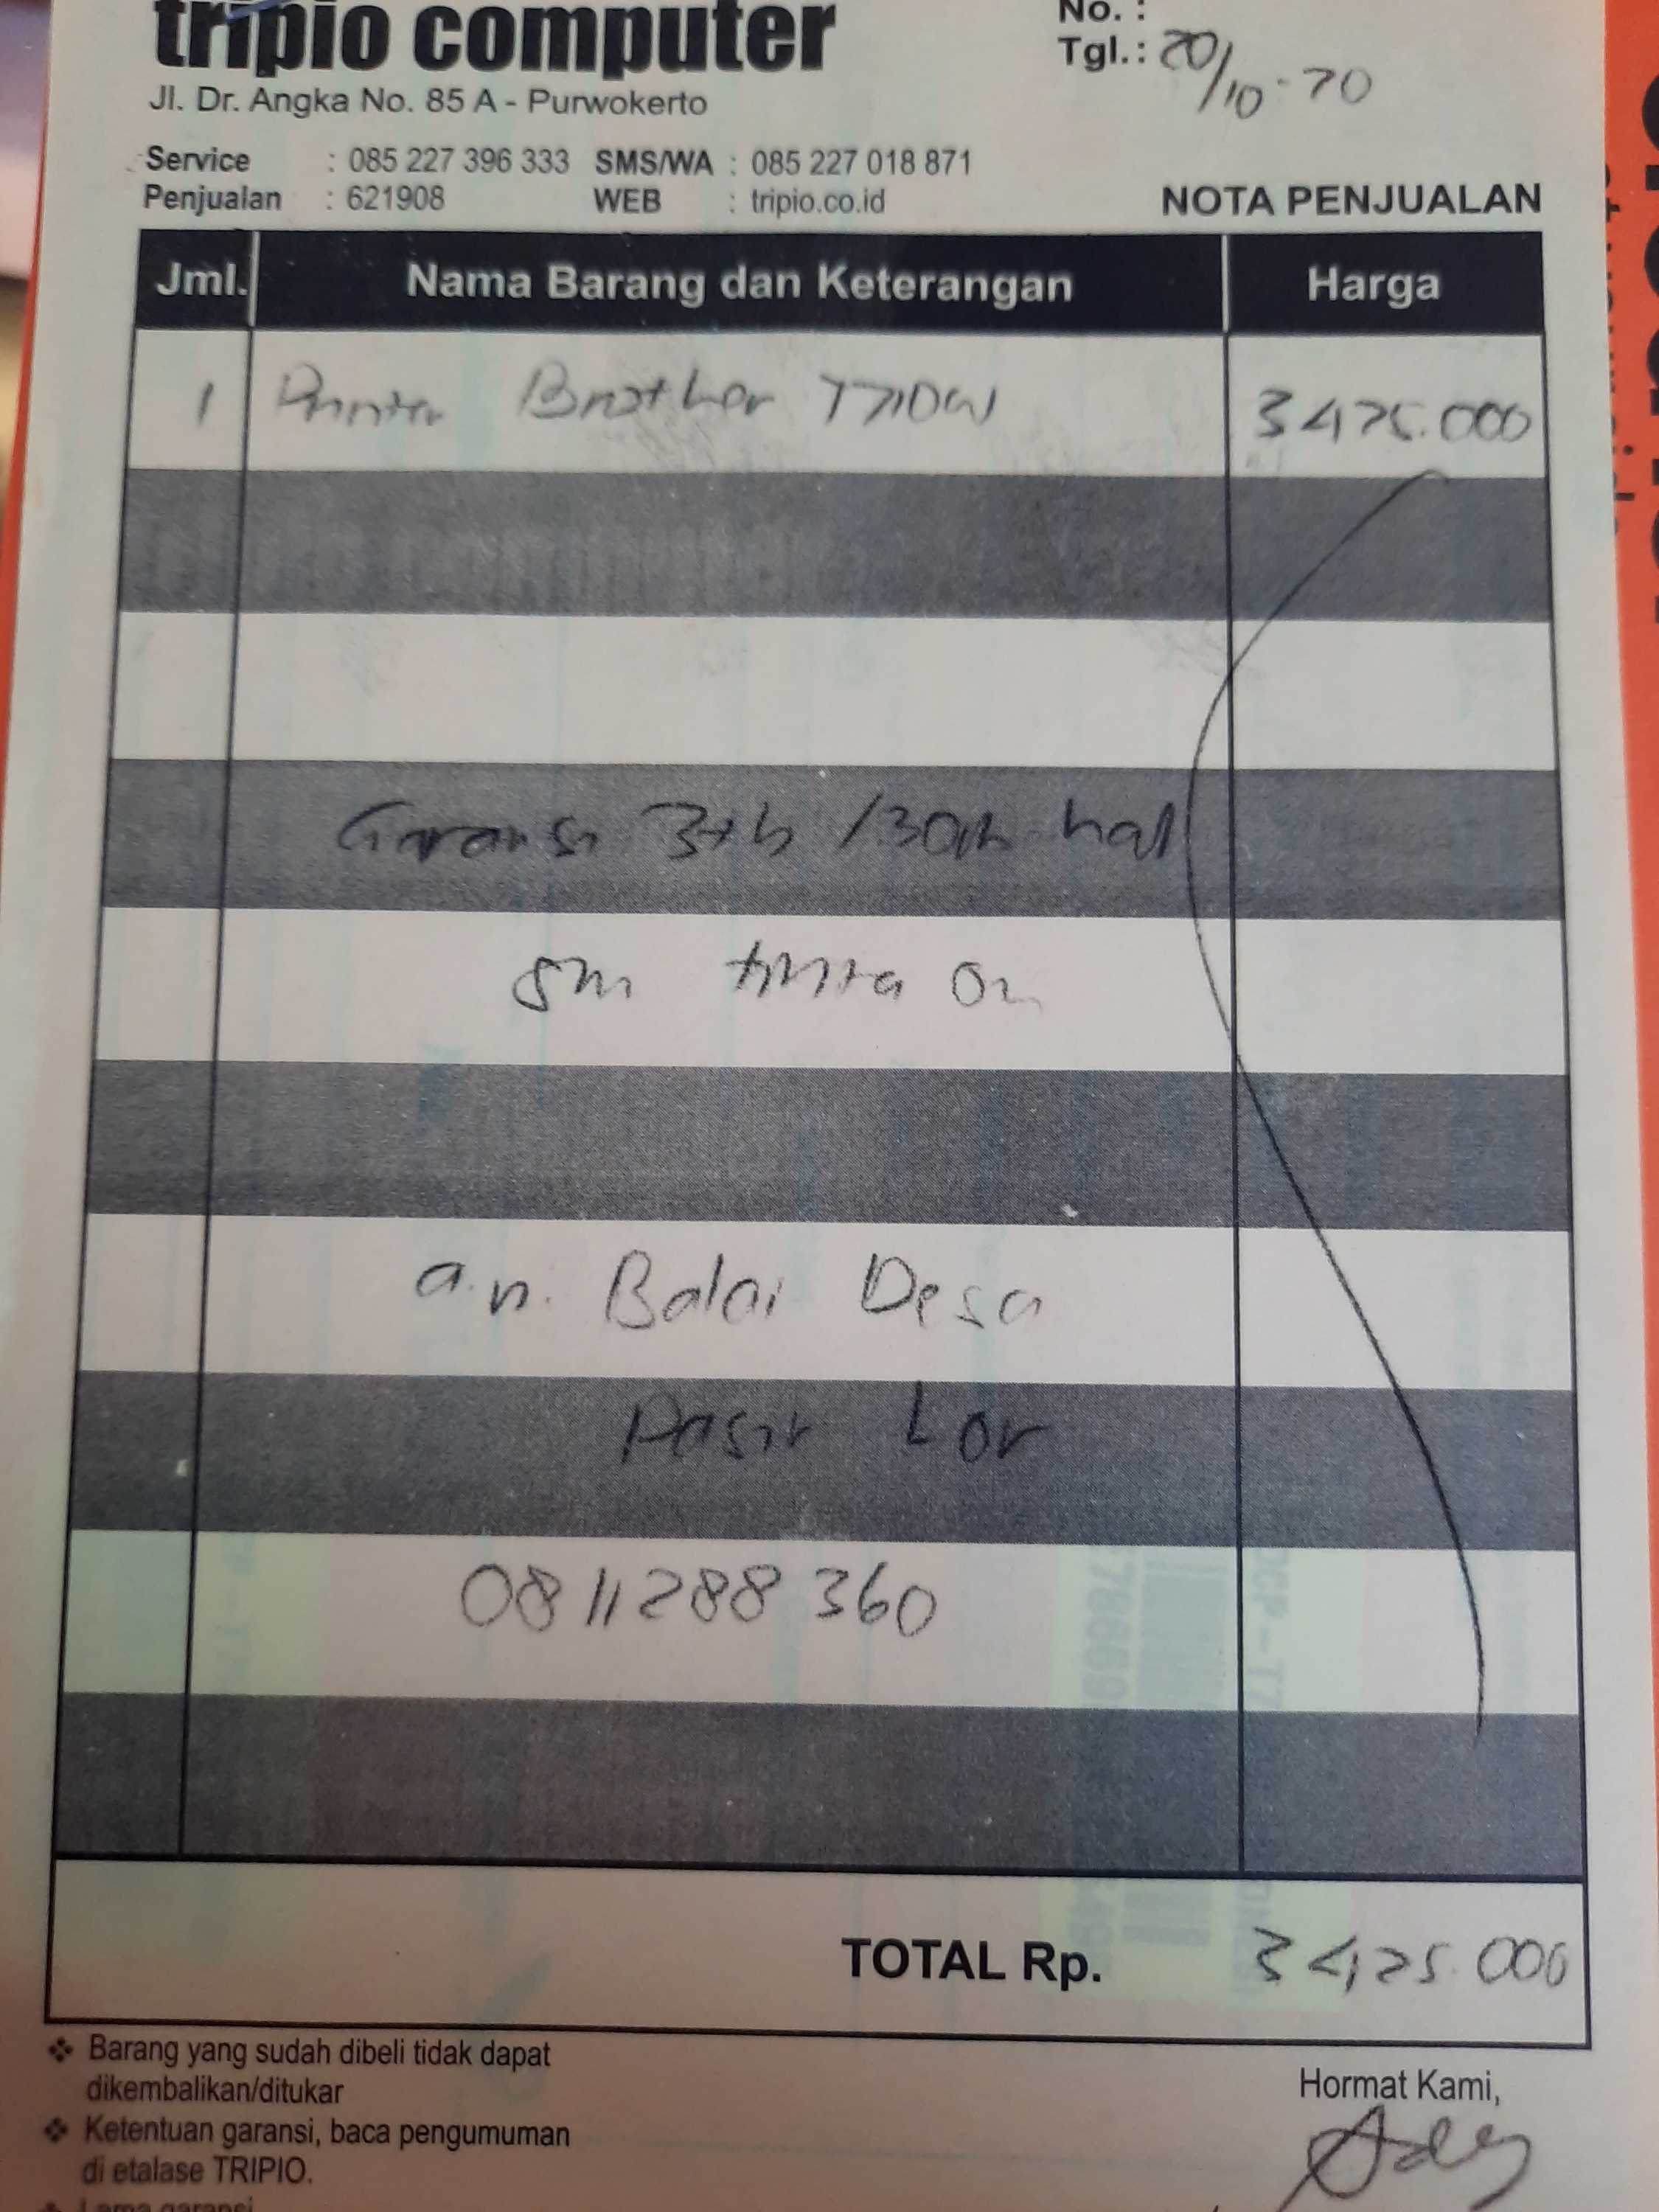 tripio computer
No. :
Tgl.: 20/10-20
Jl. Dr. Angka No. 85 A - Purwokerto
Service : 085 227 396 333 SMS/WA : 085 227 018 871
Penjualan : 621908 WEB : tripio.co.id
NOTA PENJUALAN
Jml. Nama Barang dan Keterangan Harga
1 Printer Brother T710W 3425.000
Garansi 3th / 30rb hal
tinta
a.n. Balai Desa
Pasir Lor
0811288360
TOTAL Rp. 3425.000
❖ Barang yang sudah dibeli tidak dapat
dikembalikan/ditukar
❖ Ketentuan garansi, baca pengumuman
di etalase TRIPIO.
❖ Lama garansi
Hormat Kami,